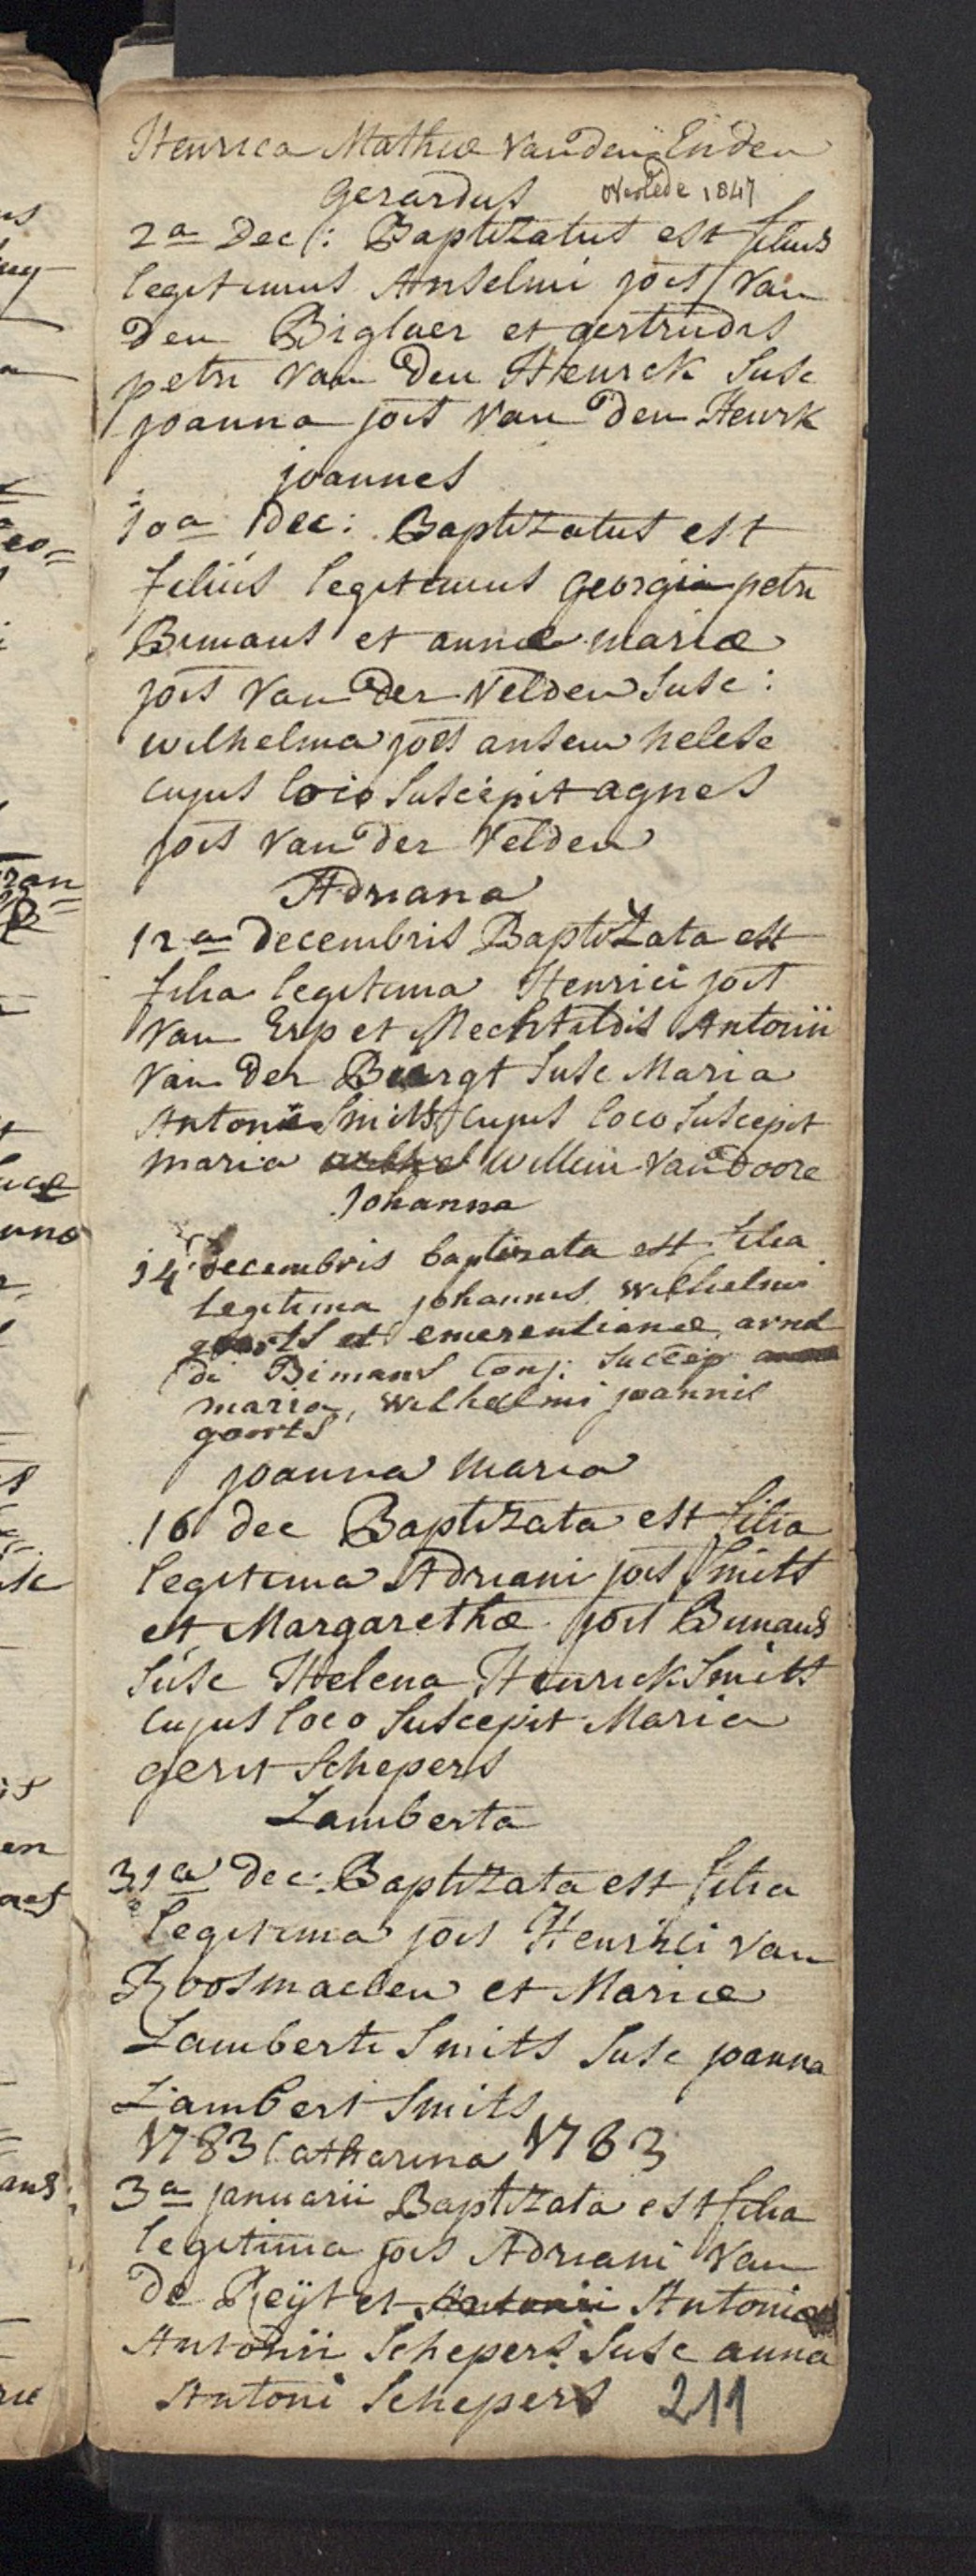 Henrica Mathiæ van den Enden
Gerardus overlede 1847
2a Dec: Baptizatus est filius
legitimus Anselmi jois van
den Biglaer et gertrudis
petri van den Heurck Susc
joanna jois van den Heurk
joannes
10a Dec: Baptizatus est
filius legitimus georgii petri
Bimans et annæ mariæ
jois van der velden Susc:
wilhelma jois ansem
cujus loco Suscepit agnes
jois van der velden
Adriana
12a Decembris Baptizata est
filia legitima Henrici jois
van Erp et Mechtildis Antonii
van der Suse Maria
Antonii Smits cujus loco Suscepit
maria Willem van Doore
Johanna
14 decembris baptizata est filia
legitima johannis Wilhelmi
goorts et emerentianæ arnol
di Bimans conj: Suscep
maria, Wilhelmi joannis
goorts
joanna maria
16 dec Baptizata est filia
legitima Adriani jois Smits
et Margarethæ jois Bimans
Susc Helena Henrick Smits
cujus loco Suscepit Maria
gerit Schepers
Lamberta
31a Dec: Baptizata est filia
legitima jois Henrici van
Roosmaelen et Mariæ
Lamberti Smits Susc joanna
Lambert Smits
1783 Catharina 1783
3a januarii Baptizata est filia
legitima jois Adriani van
de Reijt et Antonii Antoniæ
Antonii Schepers Susc anna
Antoni Schepers 211